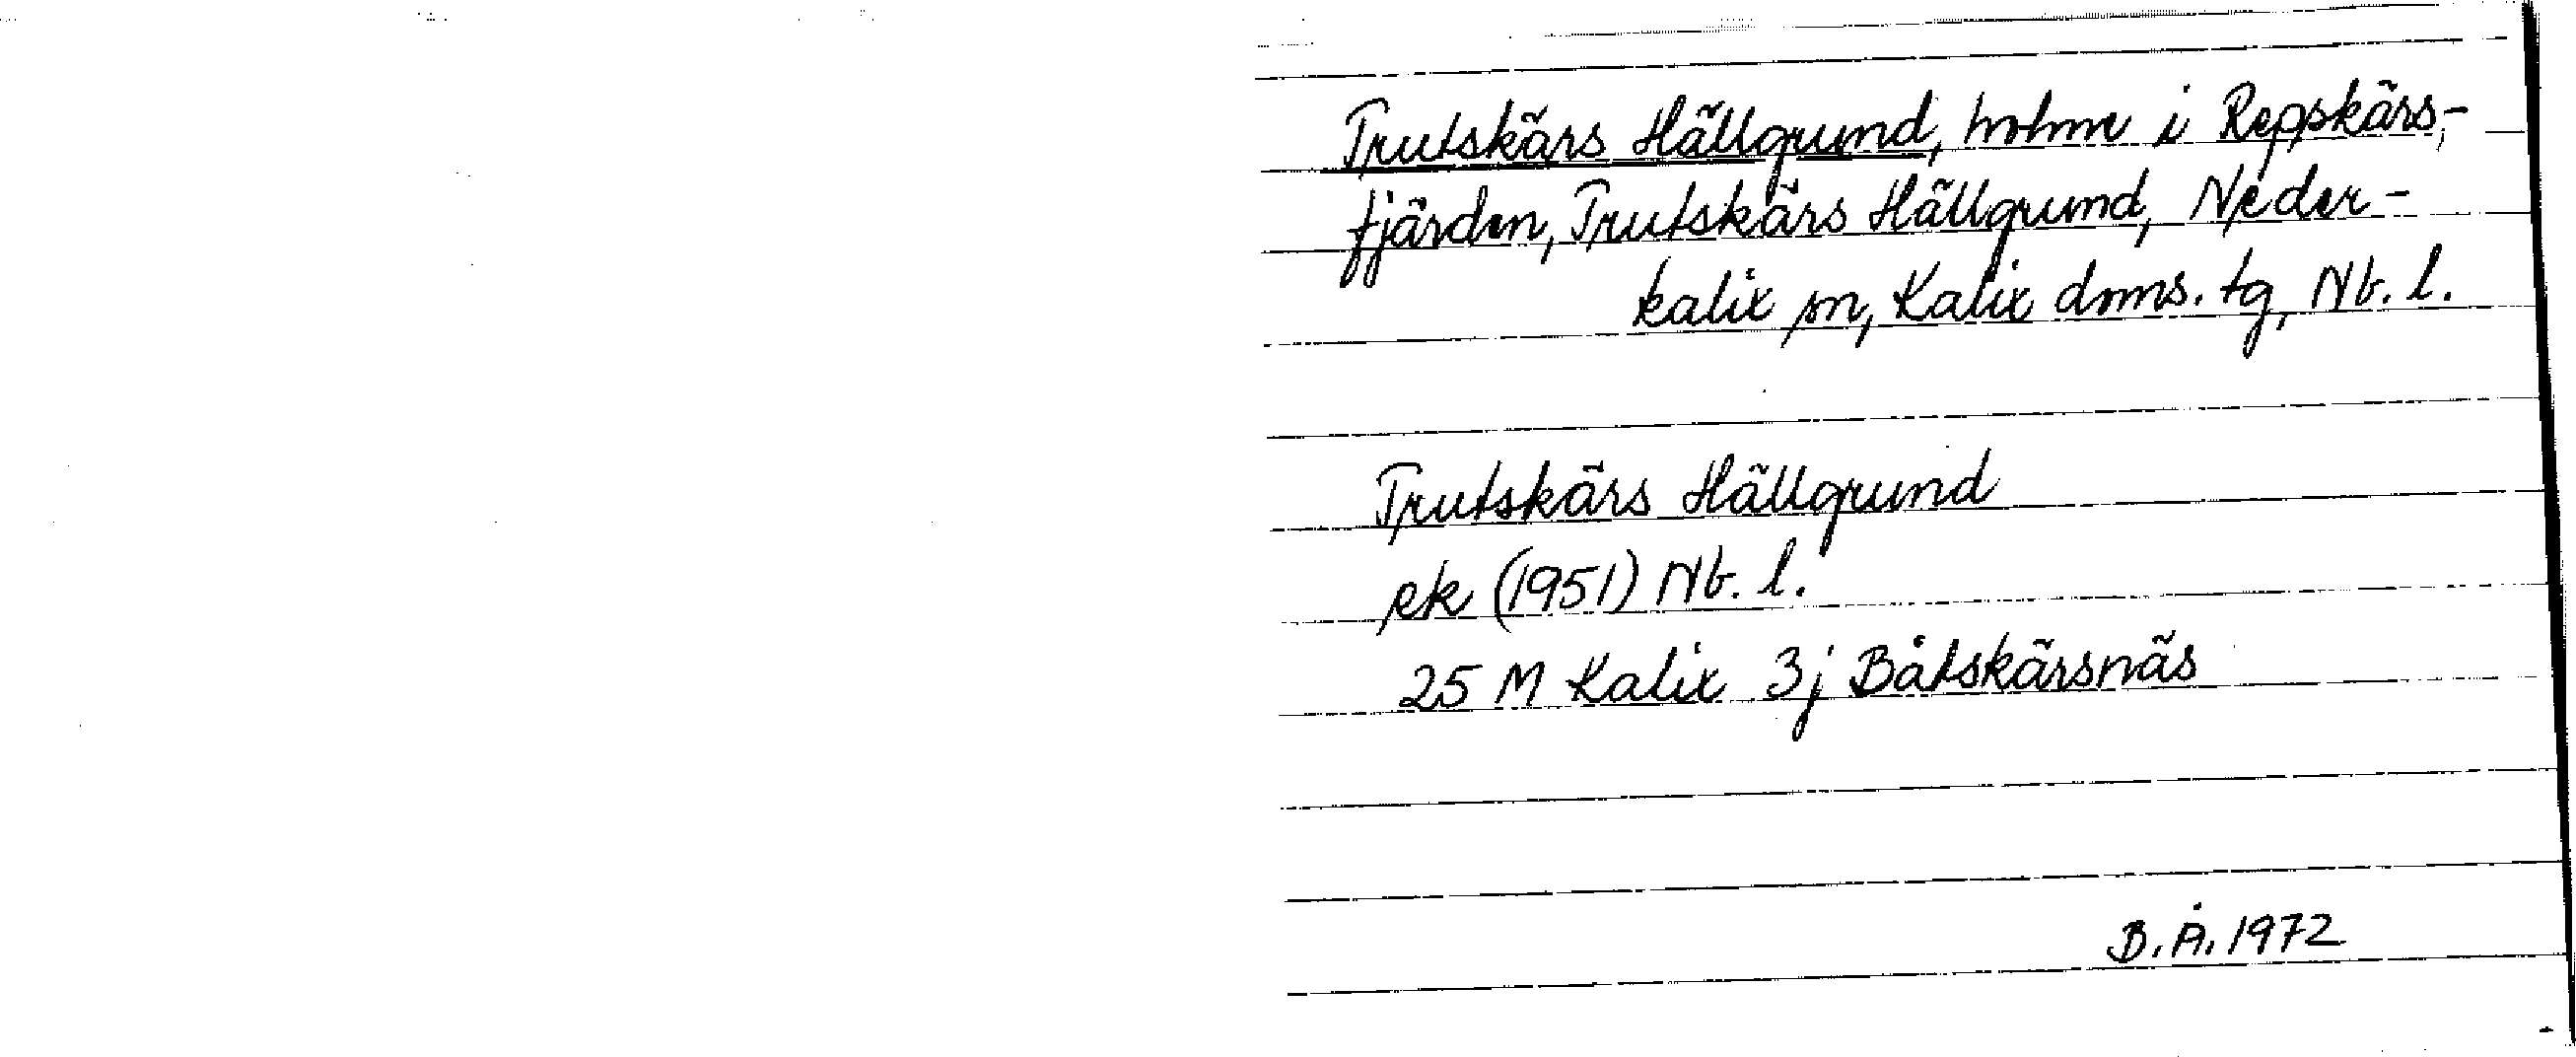 Trutskärs Hällgrund, holme i Reppskärs-
fjärden, Trutskärs Hällgrund, Neder-
kalix sn, Kalix doms. tg, Nb. l.
Trutskärs Hällgrund
ek (1951) Nb. l.
25 M Kalix 3j Båtskärsnäs
B.Å. 1972